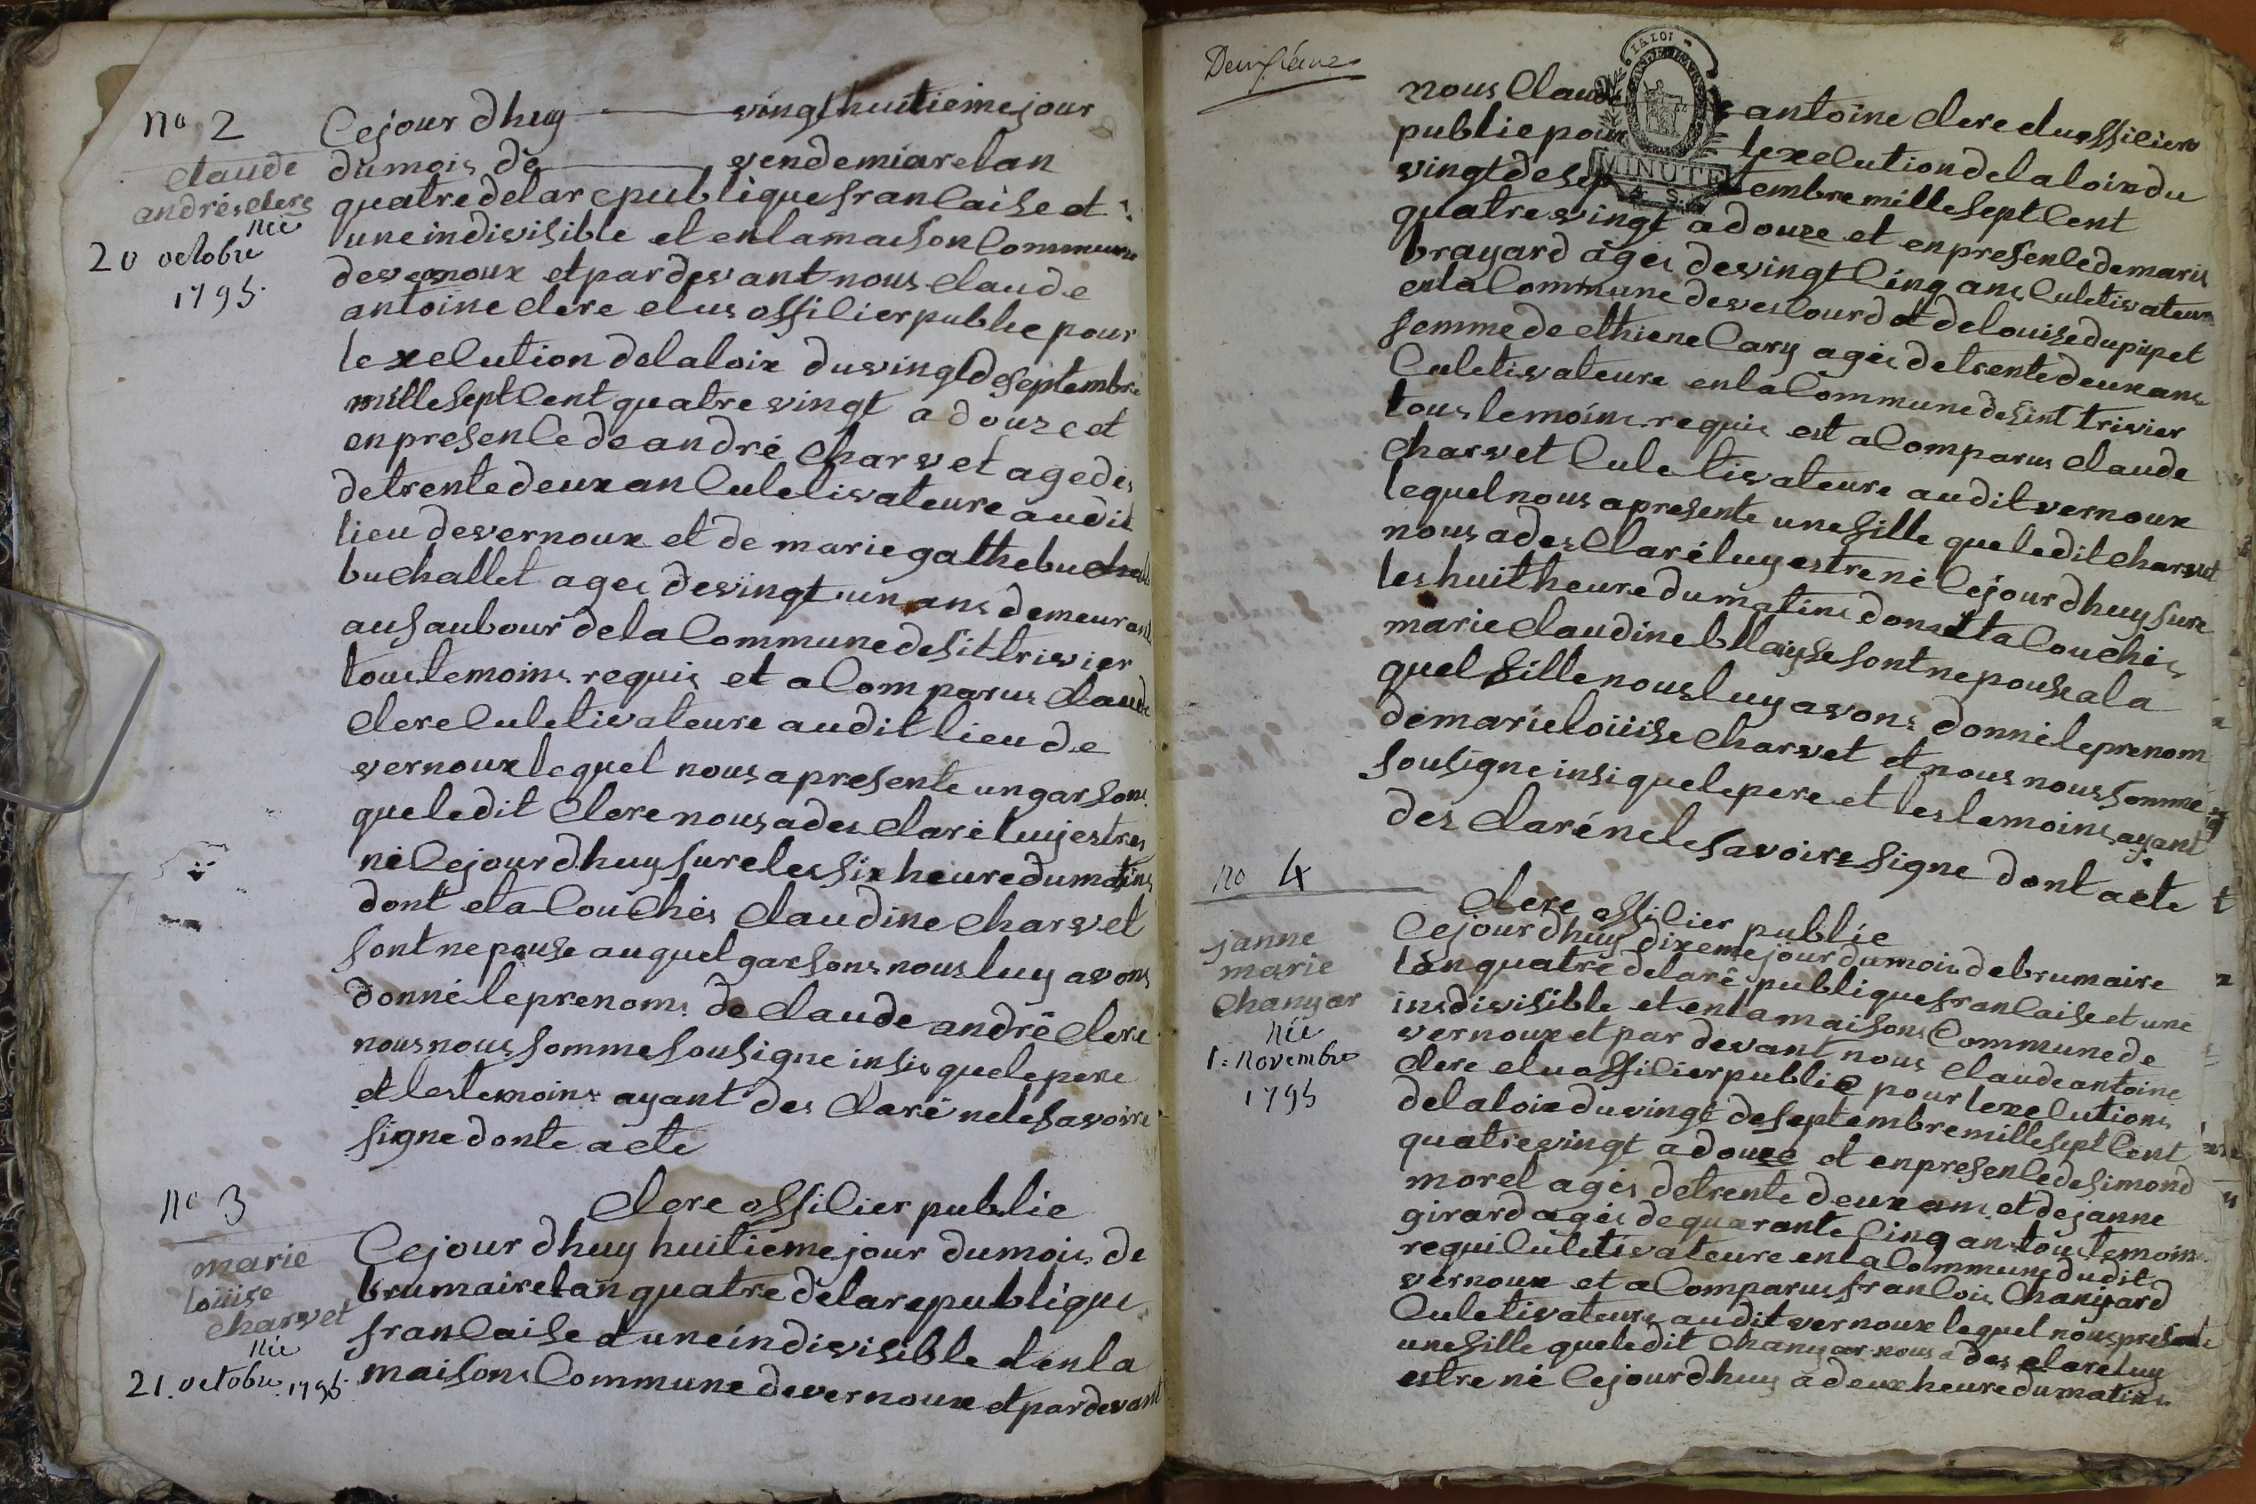 no 2
claude
andrés clerc
née
20 octobre
1795.
Cejour dhuy vingt huitiemejour
dumois de vendemiarelan
quatredelarepubliquefrancaise et
uneindivisible et enlamaison Commune
devernoux etpardevant nous claude
antoine clerc elus officierpublic pour
lexecution delaloix duvingtdeseptembre
millesept Cent quatrevingt adouze et
enpresencedeandré Charvet agédes
detrentedeuxan Culetivateure audit
lieu devernoux et de marie gathebu
buchallet ageé devingt un ans demeurant
aufaubour delaCommunedesittrivier
toustemoins requis et aComparus Claude
clerc Culetivateure auditlieude
vernouxlequel nousapresente ungarsons
queledit Clerc nousadesclaré luyestres
né Cejourdhuy surelessix heuredumatins
dont eta Couchés Claudine Charvet
sont nepouse auquelgarsons nousluy avons
donnéleprenoms de Claude andré Clerc
nousnoussommesousigne insis quelepere
et lestemoins ayant desclaré nelesavoire
signedonte acte
Clerc officierpublic
no 3
marie
louise
charvet
née
21. octobre. 1795.
Cejour dhuy huitiemejour dumois de
brumairelan quatre delarepublique
francaise etuneindivisible etenla
maisons Commune devernoux etpardevant
Deuxiéme
LA LOI
MINUTE
4 S.
nous Claude antoine clerc elusofficiere
publicpour lexecutiondelaloixdu
vingtdesep tembre millesept Cent
quatrevingt adouze et enpresencedemarie
brayard ageé devingtCinq ans Culetivateure
enlaCommune devescourd et delouisedupupet
femmedeethieneCary ageé detrentedeuxans
Culetivateure enlaCommunedesint trivier
toustemoins requis est aComparus claude
Charvet Culetivateure auditvernoux
lequelnous apresente unefille queledit charvet
nousadesclaréluyestrené Cejourdhuy sure
leshuitheuredumatins dont ta Couchés
marieclaudinebllayse sontnepouseala
quelfille nousluyavons donnéleprenom
demarielouiise Charvet et nous noussomme
sousigneinsiquelepere et lestemoins ayant
desclarénelesavoire signe dontacte
Clerc officier public
no 4
janne
marie
Chanyar
née
1: Novembre
1795
Cejourdhuy dixemejourdumois debrumaire
lanquatre delarépubliquefrancaise et une
indivisible et enlamaisons Communede
vernoux et par devant nous claudeantoine
clerc eluofficierpublic pour lexecutions
delaloixduvingt deseptembremillesept Cent
quatrevingt adouze et enpresencedesimond
morel agés detrente deuxans et dejanne
girard ageé dequarante Cinq anstoustemoins
requi Culetivateure enlaCommunedudit
vernoux et aComparusfrancois Chanyard
Culetivateure auditvernouxlequel nouspresente
unefille queledit Chanyar nous a desclaréluy
estrené Cejourdhuy adeuxheuredumatins